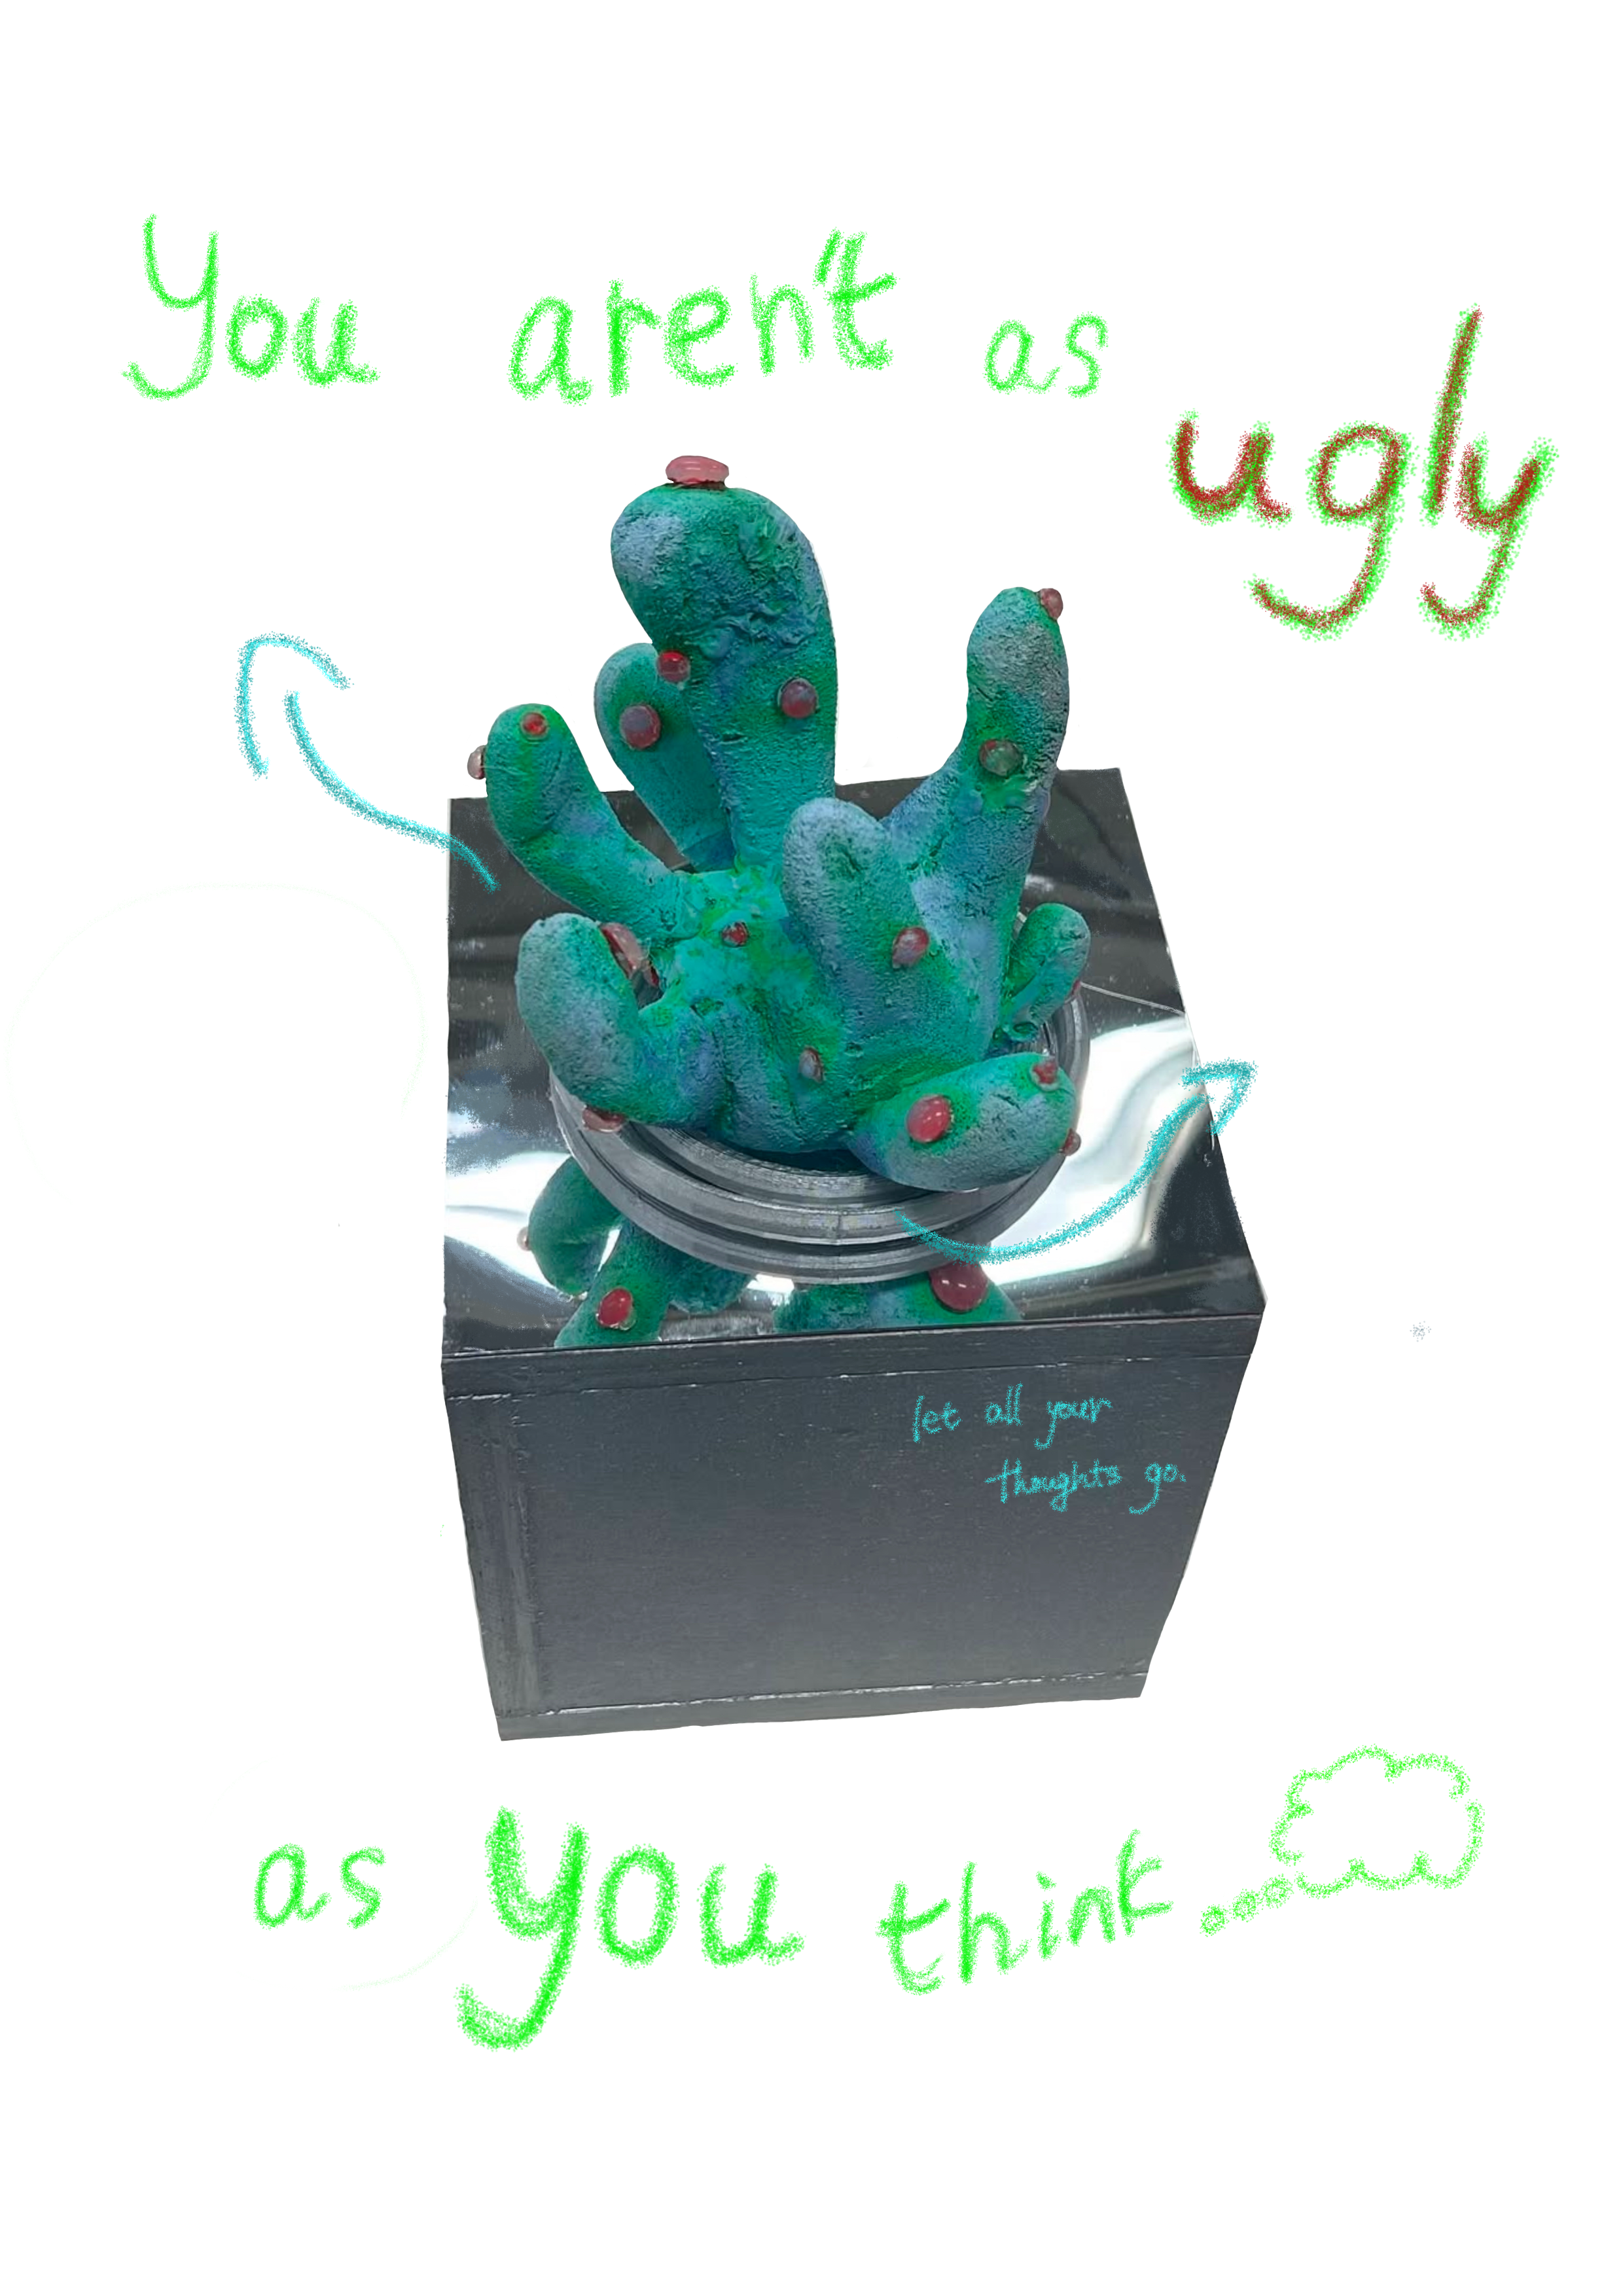 You aren't as
ugly
let all your
thoughts go.
as you think...